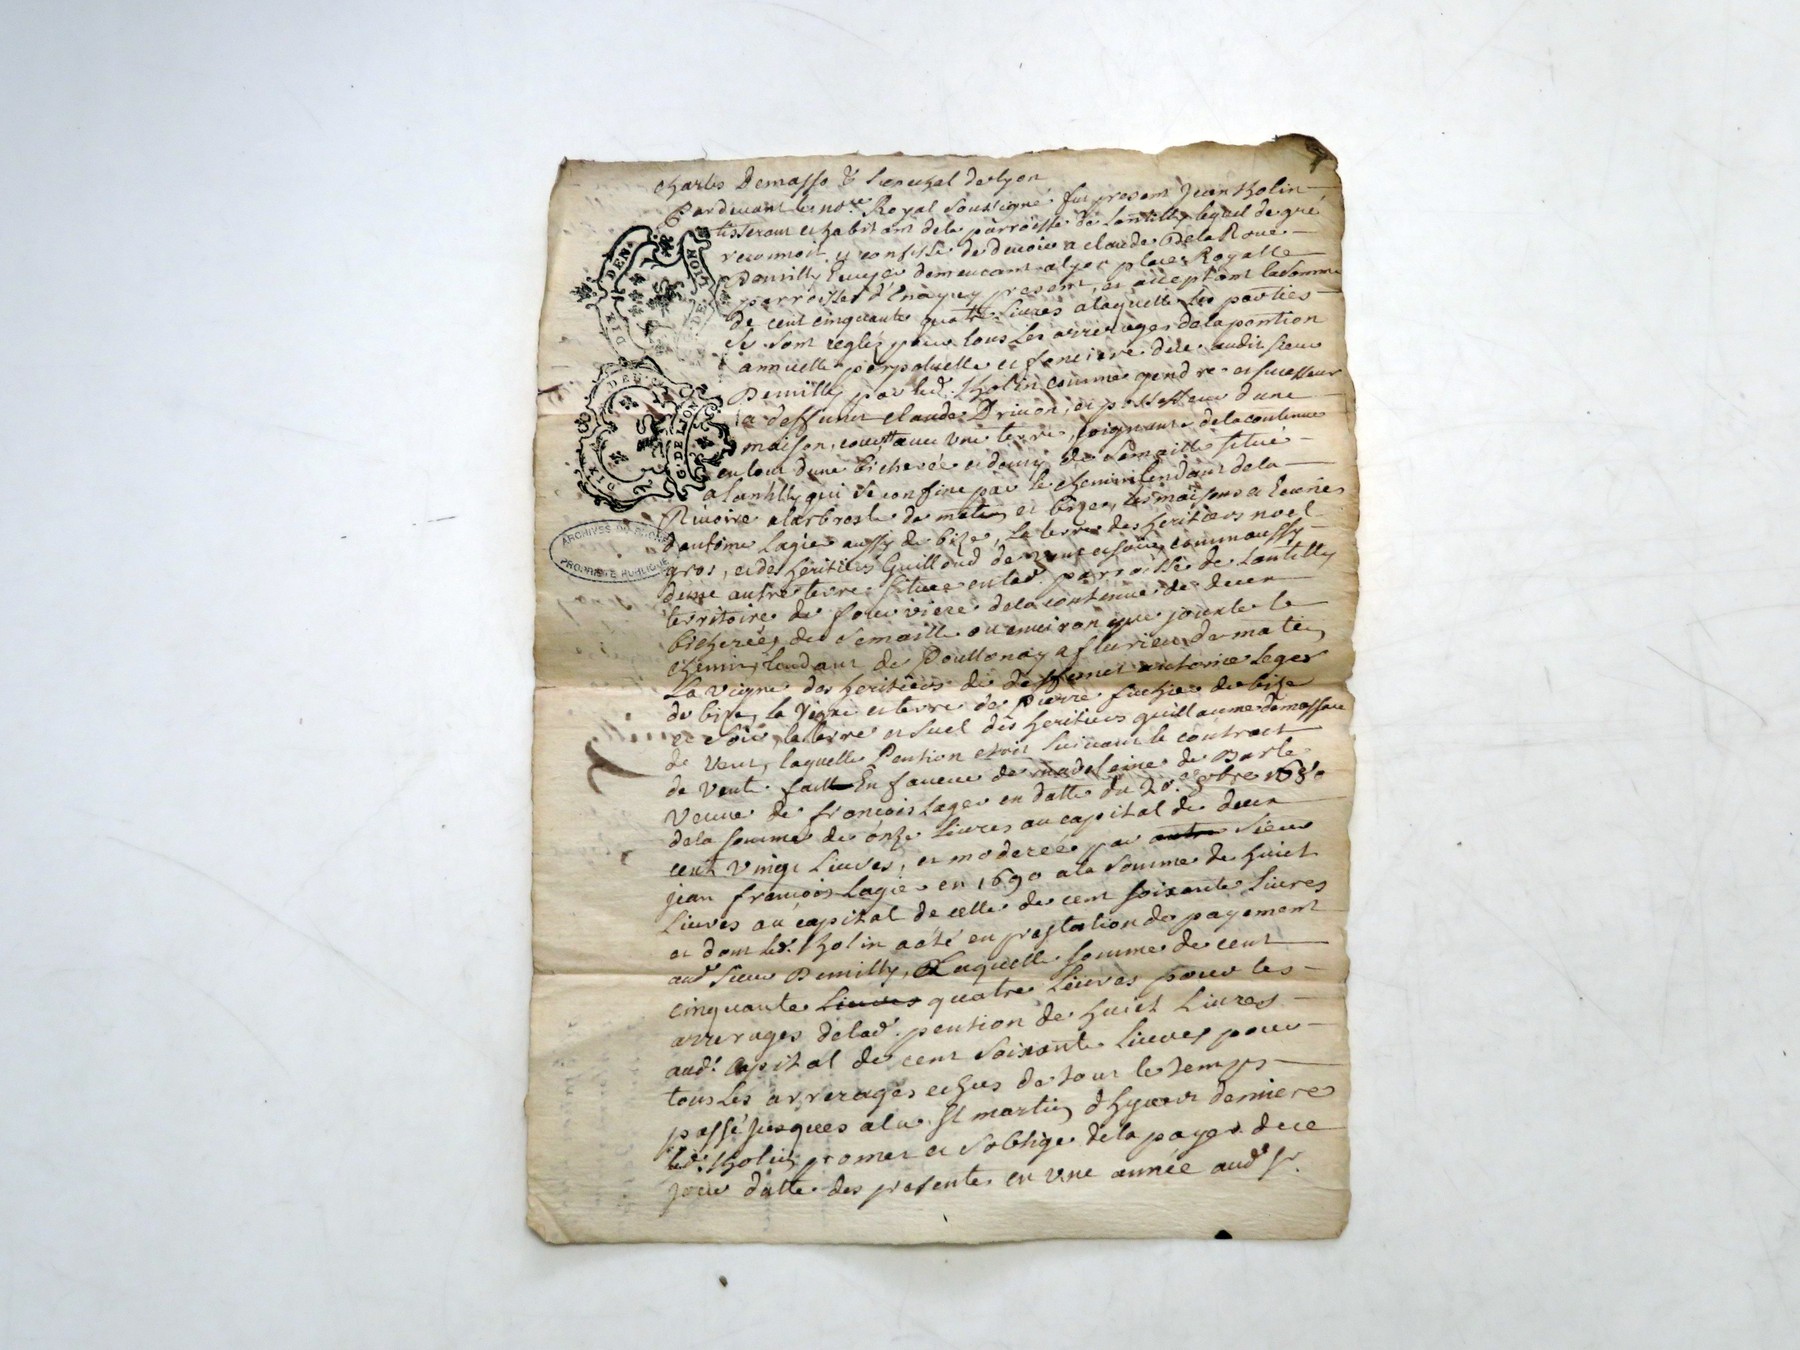 Charles Demasso & Senechal de Lyon
Pardevant le no.re Royal soussigné fut present Jean Tholin
tisserant et habitant de la parroisse de Lentilly lequel de gré
reconnoit et confesse de devoir a claude De la Roue
Demilly Ecuyer demeurant a Lyon place Royalle
parroisse d'Enay present, et acceptant la somme
de cent cinquante quatre livres a laquelle les parties
se sont reglés pour tous les arrerages de la pention
annuelle perpetuelle et fonciere dûe audit sieur
Demilly par led. Tholin comme gendre et successeur
a deffunt claude Drivon, et possesseur d'une
maison, avec une terre, joignante de la contenue
en tout d'une bicherée et demy de semaille situé
a Lentilly qui se confine par le chemin tendant de la
Rivoire a Larbresle de matin et bize, les maisons et
d'antoine Lagie aussy de bize, la terre des heritiers noel
gros, et des heritiers Guilloud de vent et soir, comm aussy
d'une autre terre située en lad. parroisse de Lentilly
territoire de fourviere de la contenue de deux
bicherées de semaille ou environ que jouxte le
chemin tendant de Poullonay a fleurieu de matin
La vigne des heritiers de deffunct antoine Leger
de bize, la vigne et terre de Pierre de bize
et soir, la terre et suel des heritiers guillaume demassou
de vent, laquelle Pention etoit suivant le contract
de vente faitte En faveur de madeleine de Barle
veuve de françois Lager en datte du 28.e 9bre 1680
de la somme de onze livres au capital de deux
cent vingt livres, et moderée par autre sieur
jean françois Lagie en 1690 a la somme de huict
livres au capital de celle de cent soixante livres
et dont led. Tholin a eté en prestation de payement
aud. sieur Demilly, Laquelle somme de cent
cinquante livres quatre livres pour les
arrerages de lad. pention de huict livres
aud. capital de cent soixante livres pour
tous les arrerages echus de tout le temps
passé jusques a la St martin d'hyver derniere
led. Tholin promet et s'oblige de la payer de ce
jour datte des presentes en une année aud. sr.
G. DE LION
DEUX
DEN.
DE LION
DIX
ARCHIVES DU RHONE
PROPRIÉTÉ PUBLIQUE